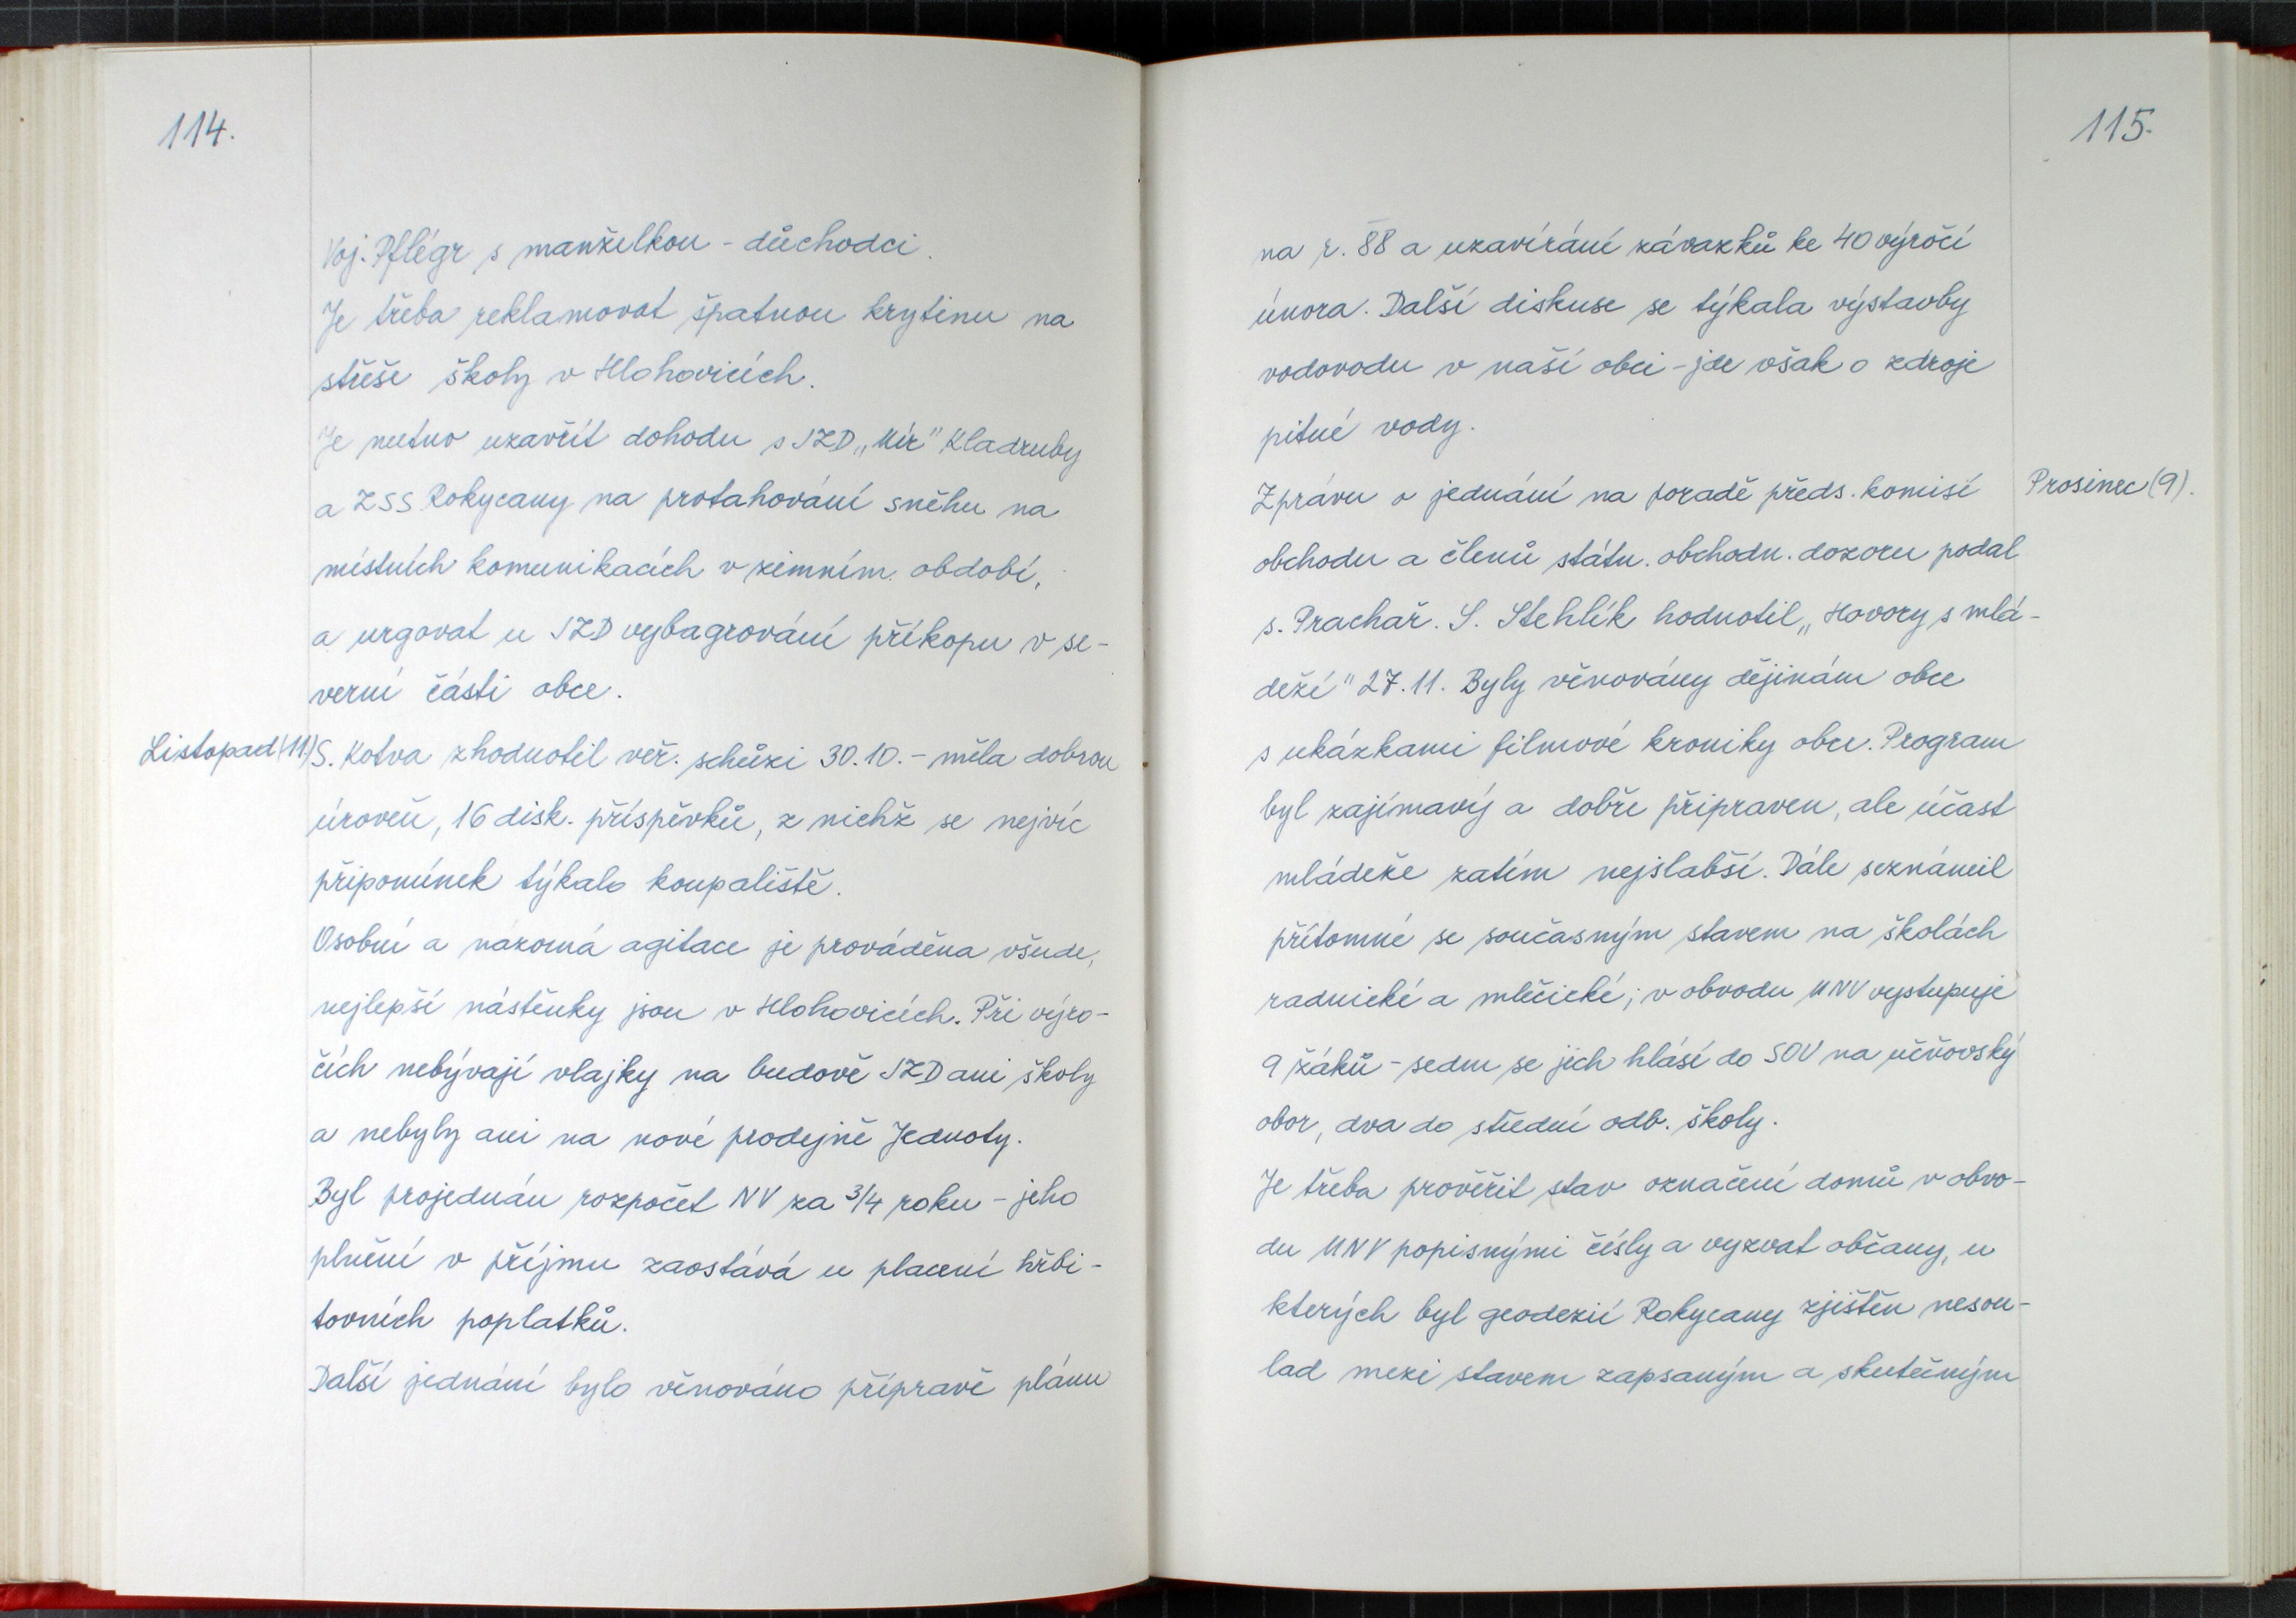 114.
Voj. Pflégr s manželkou - důchodci.
Je třeba reklamovat špatnou krytinu na
střeše školy v Hlohovicích.
Je nutno uzavřít dohodu s JZD „Mír" Kladruby
a ZSS Rokycany na protahování sněhu na
místních komunikacích v zimním období,
a urgovat u JZD vybagrování příkopu v se-
verní části obce.
Listopad (11.) S. Kotva zhodnotil veř. schůzi 30.10. - měla dobrou
úroveň, 16 disk. příspěvků, z nichž se nejvíc
připomínek týkalo koupaliště.
Osobní a názorná agitace je prováděna všude,
nejlepší nástěnky jsou v Hlohovicích. Při výro-
čích nebývají vlajky na budově JZD ani školy
a nebyly ani na nové prodejně Jednoty.
Byl projednán rozpočet NV za 3/4 roku - jeho
plnění v příjmu zaostává u placení hřbi-
tovních poplatků.
Další jednání bylo věnováno přípravě plánu
115.
na r. 88 a uzavírání závazků ke 40 výročí
února. Další diskuse se týkala výstavby
vodovodu v naší obci - jde však o zdroje
pitné vody.
Zprávu o jednání na poradě předs. komisí Prosinec (9).
obchodu a členů státn. obchodn. dozoru podal
s. Prachař. S. Stehlík hodnotil „Hovory s mlá-
deží" 27.11. Byly věnovány dějinám obce
s ukázkami filmové kroniky obce. Program
byl zajímavý a dobře připraven, ale účast
mládeže zatím nejslabší. Dále seznámil
přítomné se současným stavem na školách
radnické a mlečické; v obvodu MNV vystupuje
9 žáků - sedm se jich hlásí do SOU na učňovský
obor, dva do střední odb. školy.
Je třeba prověřit stav označení domů v obvo-
du MNV popisnými čísly a vyzvat občany, u
kterých byl geodezií Rokycany zjištěn nesou-
lad mezi stavem zapsaným a skutečným